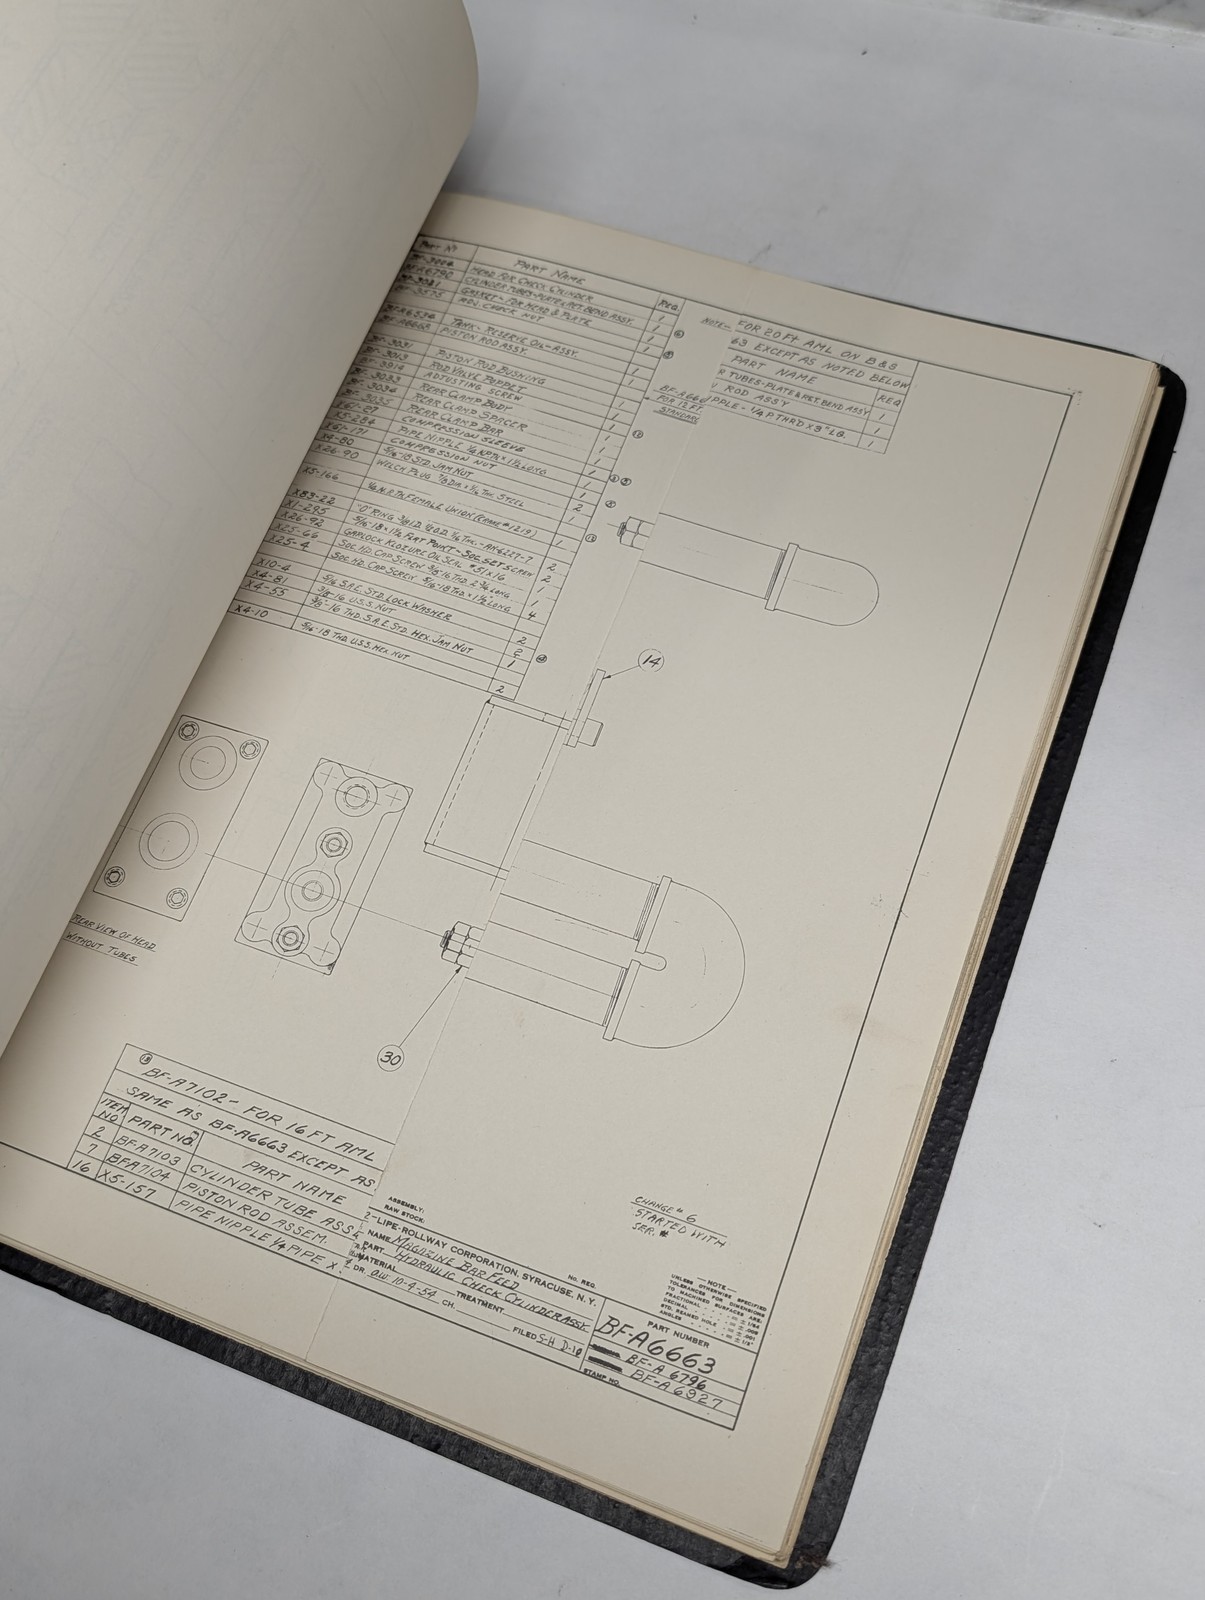 PART Nº PART NAME REQ.
BF-3004 HEAD FOR CHECK CYLINDER 1
BFA6790 CYLINDER TUBES-PLATE & RET. BEND ASSY. 1
BF-3021 GASKET-FOR HEAD & PLATE 1
ADJ. CHECK NUT 1
BF-A6534 TANK-RESERVE OIL-ASSY. 1
PISTON ROD ASSY. 1
BF-3031 PISTON ROD BUSHING 1
BF-3013 ROD VALVE POPPET 1
ADJUSTING SCREW 1
BF-3033 REAR CLAMP BODY 1
BF-3034 REAR CLAMP SPACER 1
REAR CLAMP BAR
COMPRESSION SLEEVE
PIPE NIPPLE 1/4 NPT x 1 1/2 LONG
X61-171 COMPRESSION NUT
X4-80 5/16-18 STD. JAM NUT
X26-90 WELCH PLUG 7/8 DIA x 1/16 THK. STEEL
X5-166 1/4 N.P.TH. FEMALE UNION (CRANE #1219)
X83-22 "O" RING 3/8 I.D. 1/2 O.D. 1/16 THK.-AN6227-7
X1-295 5/16-18 x 1 1/4 FLAT POINT-SOC. SET SCREW
X26-92 GARLOCK KLOZURE OIL SEAL #51X16
X25-66 SOC. HD. CAP SCREW 3/8-16 THD. 2 3/4 LONG
X25-4 SOC. HD. CAP SCREW 5/16-18 THD. x 1 1/2 LONG 4
X10-4 5/16 S.A.E. STD. LOCK WASHER 2
X4-81 3/8-16 U.S.S. NUT 2
X4-55 3/8-16 THD. S.A.E. STD. HEX. JAM NUT 1
X4-10 5/16-18 THD. U.S.S. HEX. NUT 2
NOTE- FOR 20 FT AML ON B & S
63 EXCEPT AS NOTED BELOW
PART NAME REQ
R TUBES-PLATE & RET. BEND ASSY 1
ROD ASS'Y 1
IPPLE-1/4 P THRD X 3" LG. 1
FOR 12 FT.
STANDARD
14
REAR VIEW OF HEAD
WITHOUT TUBES
30
BF-A7102- FOR 16 FT AML
SAME AS BF-A6663 EXCEPT AS
ITEM NO PART NO. PART NAME
2 BF-A7103 CYLINDER TUBE ASS
7 BFA7104 PISTON ROD ASSEM.
16 X5-157 PIPE NIPPLE 1/4 PIPE X
CHANGE # 6
STARTED WITH
SER. #
ASSEMBLY:
RAW STOCK:
No. REQ.
LIPE-ROLLWAY CORPORATION, SYRACUSE, N. Y.
NAME MAGAZINE BAR FEED
PART HYDRAULIC CHECK CYLINDER ASSY.
MATERIAL TREATMENT
DR. O.W. 10-4-54 CH. FILED S-H D-10
NOTE
UNLESS OTHERWISE SPECIFIED
TOLERANCES FOR DIMENSIONS
TO MACHINED SURFACES ARE:
FRACTIONAL ± 1/64
DECIMAL ± .005
STD. REAMED HOLE ± .001
ANGLES ± 1/2°
PART NUMBER
BF-A6663
BF-A 6796
BF-A 6927
STAMP NO.